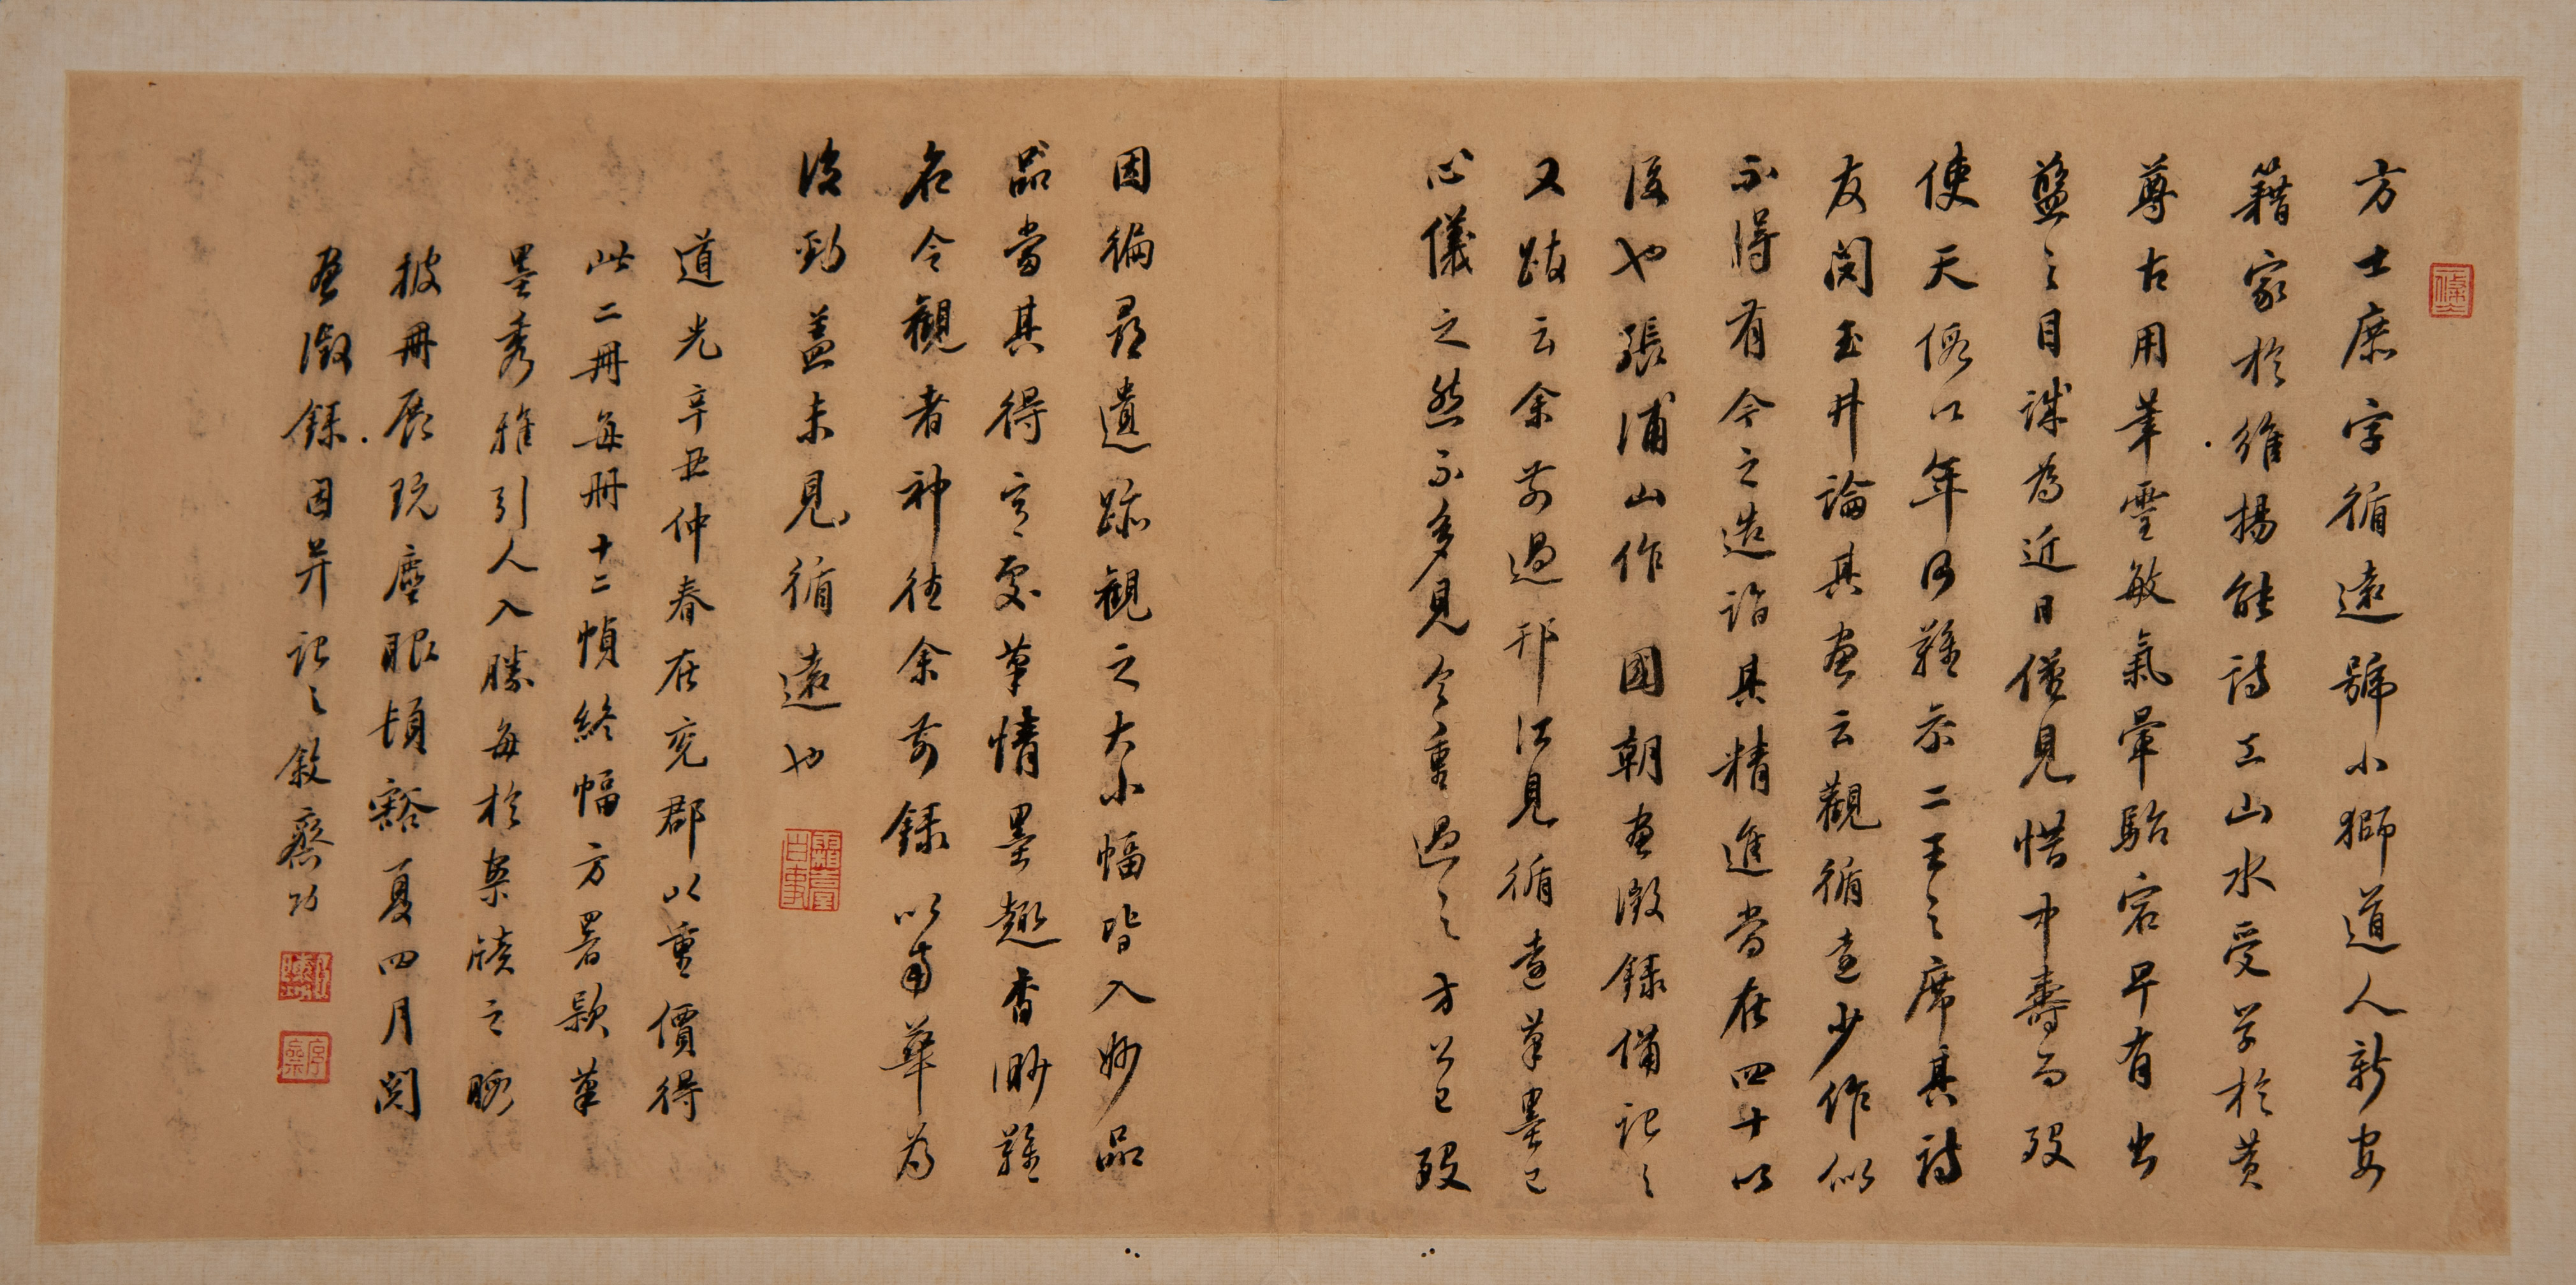 方士庶字循遠號小獅道人新安
籍家於維揚能詩工山水受學於黃
尊古用筆靈敏氣暈駘宕早有出
藍之目誠為近日僅見惜中壽而歿
使天假以年何難參二王之席其詩
友閔玉井論其畫云觀循遠少作似
不得有今之造詣其精進當在四十以
後也張浦山作 國朝畫徵錄備記之
又跋云余前過邗江見循遠筆墨已
心儀之然不多見今重過之方公已歿
因徧尋遺跡觀之大小幅皆入妙品
品當其得意處筆情墨趣杳眇難
名令觀者神往余前錄以南華為
後勁蓋未見循遠也
道光辛丑仲春在兗郡以重價得
此二冊每冊十二幀終幅方署款筆
墨秀雅引人入勝每於案牘之暇
披冊展玩塵眼頓豁夏四月閱
畫徵錄因并記之敘齋功